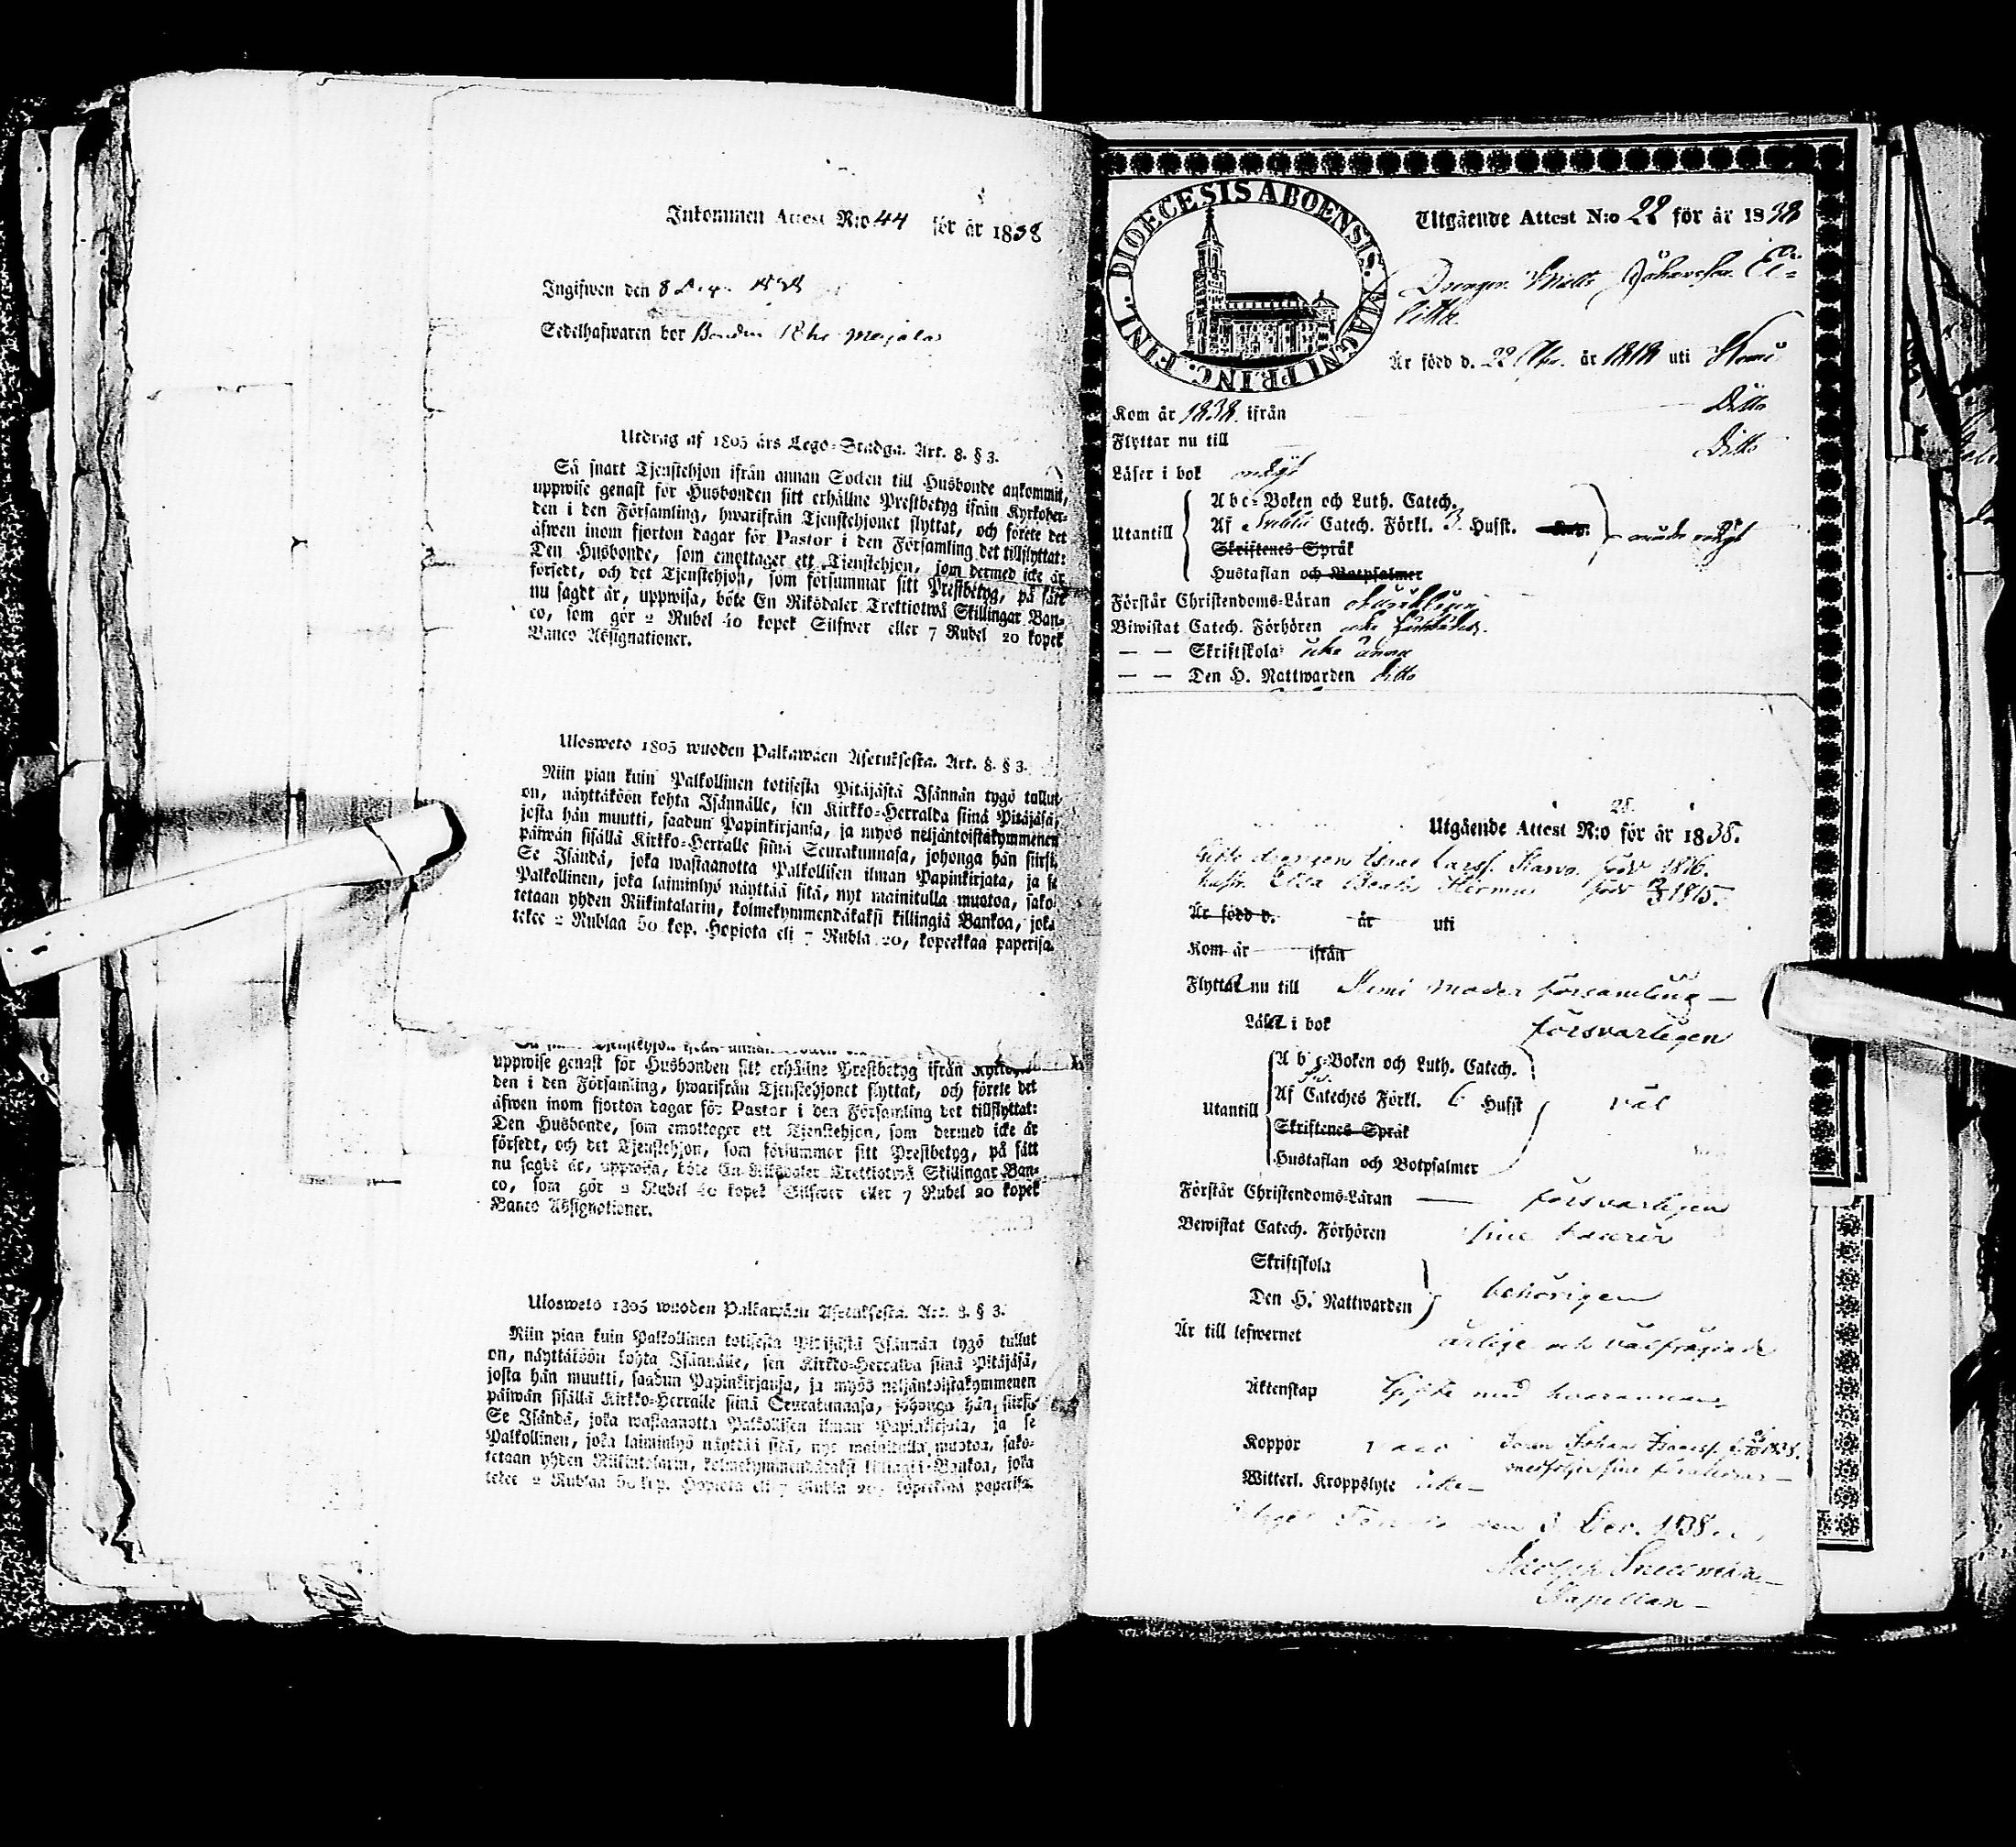 Inkommen Attest N:o 44 för år 1838
Ingifwen den 8 1838
Sedelhafwaren bor
Utdrag af 1805 års Lego-Stadga. Art. 8. § 3.
Så snart Tjenstehjon ifrån annan Socken till Husbonde ankommit,
uppwise genast för Husbonden sitt erhållne Prestbetyg ifrån Kyrkoher-
den i den Församling, hwarifrån Tjenstehjonet flyttat, och förete det
äfwen inom fjorton dagar för Pastor i den Församling det tillflyttat:
Den Husbonde, som emottager ett Tjenstehjon, som dermed icke är
försedt, och det Tjenstehjon, som försummar sitt Prestbetyg, på sätt
nu sagdt är, uppwisa, böte En Riksdaler Trettiotwå Skillingar Ban-
co, som gör 2 Rubel 40 kopek Silfwer eller 7 Rubel 20 kopek
Banco Assignationer.
Ulosweto 1805 wuoden Palkawäen Asetuksesta. Art. 8. § 3.
Niin pian kuin Palkollinen totisesta Pitäjästä Isännän tygö tullut
on, näyttäköön kohta Isännälle, sen Kirkko-Herralda siinä Pitäjäsä,
josta hän muutti, saadun Papinkirjansa, ja myös neljäntoistakymmenen
päiwän sisällä Kirkko-Herralle siinä Seurakunnasa, johonga hän siirsi.
Se Isändä, joka wastaanotta Palkollisen ilman Papinkirjata, ja se
Palkollinen, joka laiminlyö näyttää sitä, nyt mainitulla muotoa, sako-
tetaan yhden Riikintalarin, kolmekymmendäkaksi killingiä Bankoa, joka
tekee 2 Rublaa 50 kop. Hopiota eli 7 Rubla 20, kopeekkaa paperisa.
uppwise genast för Husbonden sitt erhållne Prestbetyg ifrån
den i den Församling, hwarifrån Tjenstehjonet flyttat, och förete det
äfwen inom fjorton dagar för Pastor i den Församling det tillflyttat:
Den Husbonde, som emottager ett Tjenstehjon, som dermed icke är
försedt, och det Tjenstehjon, som försummar sitt Prestbetyg, på sätt
nu sagdt är, uppwisa, böte En Riksdaler Trettiotwå Skillingar Ban-
co, som gör 2 Rubel 40 kopek Silfwer eller 7 Rubel 20 kopek
Banco Assignationer.
Ulosweto 1805 wuoden Palkawäen Asetuksesta. Art. 8. § 3.
Niin pian kuin Palkollinen totisesta Pitäjästä Isännän tygö tullut
on, näyttäköön kohta Isännälle, sen Kirkko-Herralda siinä Pitäjäsä,
josta hän muutti, saadun Papinkirjansa, ja myös neljäntoistakymmenen
päiwän sisällä Kirkko-Herralle siinä Seurakunnasa, johonga hän siirsi.
Se Isändä, joka wastaanotta Palkollisen ilman Papinkirjata, ja se
Palkollinen, joka laiminlyö näyttää sitä, nyt mainitulla muotoa, sako-
tetaan yhden Riikintalarin, kolmekymmendäkaksi killingiä Bankoa, joka
tekee 2 Rublaa 50 kop. Hopiota eli 7 Rubla 20, kopeekkaa paperisa.
DIOECESIS ABOENSIS. MAGNI PRINC. FINL.
Utgående Attest N:o 22 för år 1838
Drengen Matts Johansson
Är född d. 22 år 1818 uti Kemi
Kom år 1838 ifrån Ditto
Flyttar nu till Ditto
Läser i bok
Utantill
Abc-Boken och Luth. Catech.
Af Catech. Förkl. 3 Hufst.
Skriftenes Språk
Hustaflan och Botpsalmer
Förstår Christendoms-Läran
Biwistat Catech. Förhören
— — Skriftskola icke ännu
— — Den H. Nattwarden ditto
28.
Utgående Attest N:o för år 1838.
Gifte drengen Lars. född 1816.
hustr. född 1815.
Är född d. år uti
Kom år ifrån
Flytta nu till Kemi Moder församling —
Läsa i bok försvarligen
Utantill
Abc-Boken och Luth. Catech.
Af Cateches Förkl. 6 Hufst väl
Skriftenes Språk
Hustaflan och Botpsalmer
Förstår Christendoms-Läran — försvarligen
Bewistat Catech. Förhören
Skriftskola
Den H. Nattwarden behörigen
Är till lefwernet ärlige och välfrägdade
Äktenskap Gifte med hvarannan
Koppor Johan 1838.
medföljer sine föräldrar —
Witterl. Kroppslyte icke —
den 3 Dec. 1838.
Adolph Snellman
Kapellan —